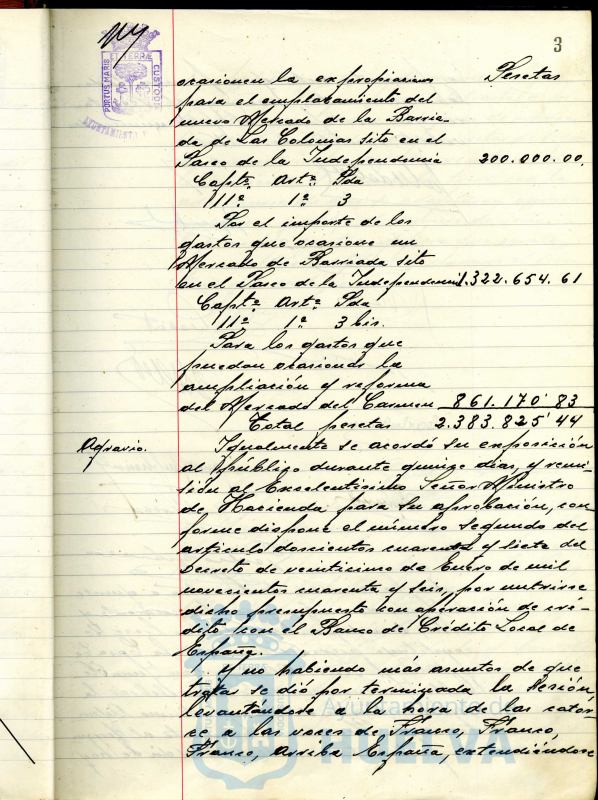 3
PORTUS MARIS ET TERRÆ CUSTODIA
AYUNTAMIENTO
ocasionen la expropiaciones Pesetas
para el emplazamiento del
nuevo Mercado de la Barria-
da de Las Colonias sito en el
Paseo de la Independencia 200.000.00,
Captº. Artº. Pda
111º 1º 3
Por el importe de los
gastos que ocasione un
Mercado de Barriada sito
en el Paseo de la Independencia 1.322.654.61
Captº. Artº. Pda
11º 1º 3 bis.
Para los gastos que
puedan ocasionar la
ampliación y reforma
del Mercado del Carmen 861.170'83
Total pesetas 2.383.825'44
Agravio. Igualmente se acordó su exposición
al público durante quince días, y remi-
sión al Excelentísimo Señor Ministro
de Hacienda para su aprobación, con
forme dispone el número segundo del
artículo doscientos cuarenta y siete del
Decreto de veinticinco de Enero de mil
novecientos cuarenta y seis, por nutrirse
dicho presupuesto con operación de cré-
dito con el Banco de Crédito Local de
España.
Y no habiendo más asuntos de que
trata se dió por terminada la sesión
levantándose a la hora de las cator-
ce a las voces de Franco, Franco,
Franco, Arriba España, extendiéndose
Ayuntamiento de
HUELVA